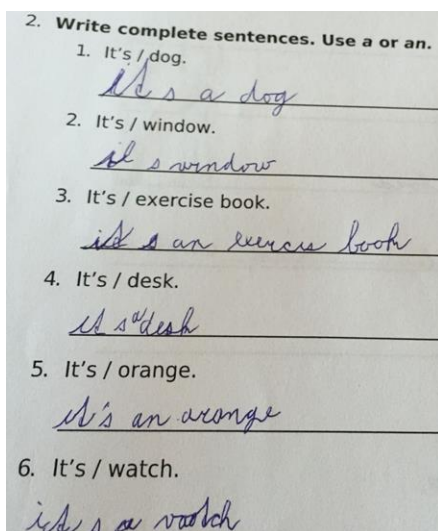 2. Write complete sentences. Use a or an.
1. It's / dog.
it's a dog
2. It's / window.
it s window
3. It's / exercise book.
it s an exercis book
4. It's / desk.
it s a desk
5. It's / orange.
it's an orange
6. It's / watch.
it s a vootch